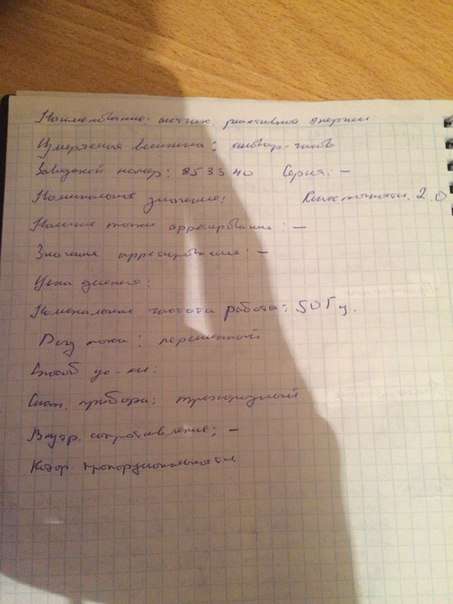 Наименование: счетчик реактивной энергии
Измеряемая величина: киловар-часов
Заводской номер: 853540 Серия: -
Номинальное значение: Класс точности: 2.0
Наличие точки арретирования: -
Значение арретирования: -
Цена деления:
Номинальная частота работы: 50 Гц.
Род тока: переменный
Способ уст-ки:
Сист. прибора: трехфазный
Внутр. сопротивление: -
Коэф. пропорциональности